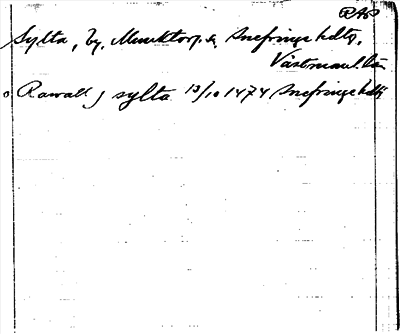 RAP
Sylta, by, Munktorp s, Snefringe hdg,
Västmanl. län
o Rawall j sylta 13/10 1474 Snefringe hdg